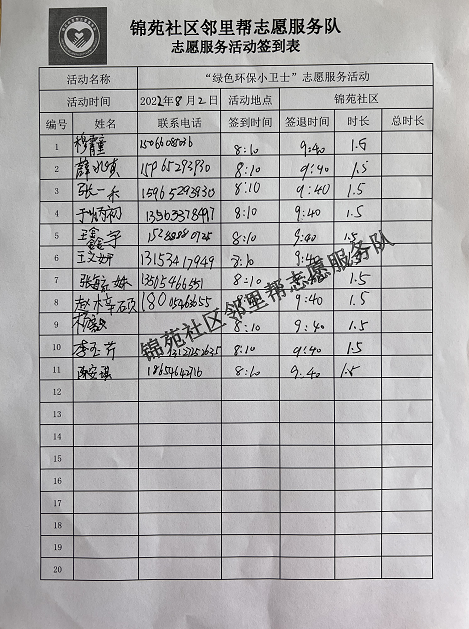 锦苑社区邻里帮志愿服务队
志愿服务活动签到表
活动名称 “绿色环保小卫士”志愿服务活动
活动时间 2022年8月2日 活动地点 锦苑社区
编号 姓名 联系电话 签到时间 签退时间 时长 总时长
1 8:10 9:40 1.5
2 15965293930 8:10 9:40 1.5
3 张一禾 15965293930 8:10 9:40 1.5
4 8:10 9:40 1.5
5 8:10 9:40 1.5
6 王文妍 13153417949 8:10 9:40
7 8:10 1.5
8 8:10 9:40 1.5
9 8:10 9:40 1.5
10 8:10 9:40 1.5
11 8:10 9:40 1.5
12
13
14
15
16
17
18
19
20
锦苑社区邻里帮志愿服务队